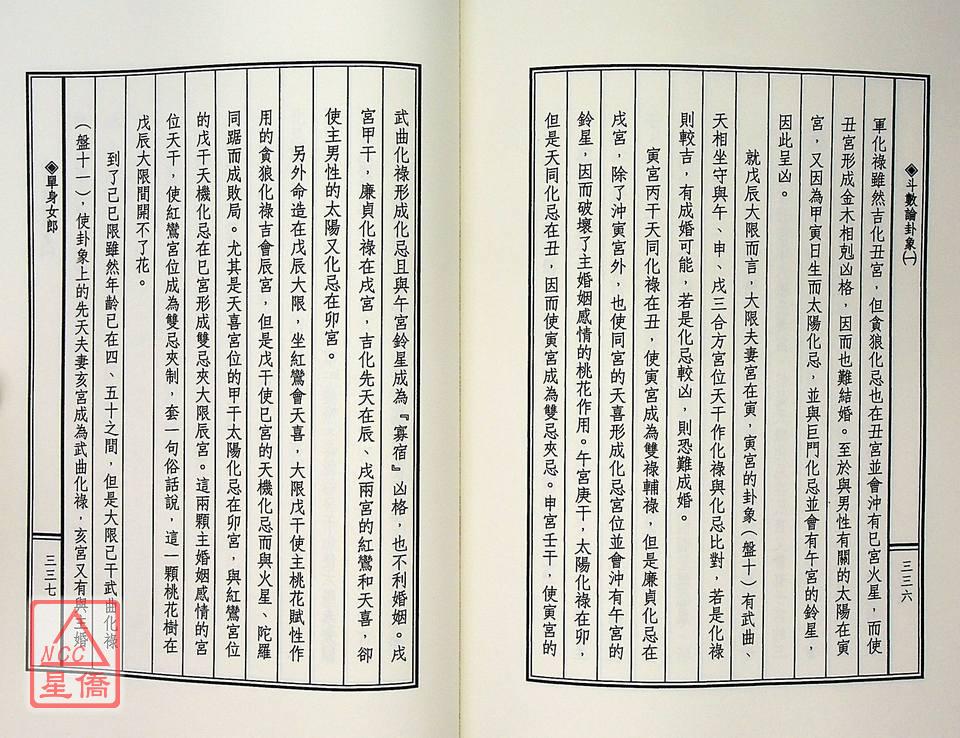 ◈斗數論卦象㈠
三三六
軍化祿雖然吉化丑宮，但貪狼化忌也在丑宮並會沖有巳宮火星，而使
丑宮形成金木相剋凶格，因而也難結婚。至於與男性有關的太陽在寅
宮，又因為甲寅日生而太陽化忌，並與巨門化忌並會有午宮的鈴星，
因此呈凶。
就戊辰大限而言，大限夫妻宮在寅，寅宮的卦象（盤十）有武曲、
天相坐守與午、申、戌三合方宮位天干作化祿與化忌比對，若是化祿
則較吉，有成婚可能，若是化忌較凶，則恐難成婚。
寅宮丙干天同化祿在丑，使寅宮成為雙祿輔祿，但是廉貞化忌在
戌宮，除了沖寅宮外，也使同宮的天喜形成化忌宮位並會沖有午宮的
鈴星，因而破壞了主婚姻感情的桃花作用。午宮庚干，太陽化祿在卯，
但是天同化忌在丑，因而使寅宮成為雙忌夾忌。申宮壬干，使寅宮的
武曲化祿形成化忌且與午宮鈴星成為『寡宿』凶格，也不利婚姻。戌
宮甲干，廉貞化祿在戌宮，吉化先天在辰、戌兩宮的紅鸞和天喜，卻
使主男性的太陽又化忌在卯宮。
另外命造在戊辰大限，坐紅鸞會天喜，大限戊干使主桃花賦性作
用的貪狼化祿吉會辰宮，但是戊干使巳宮的天機化忌而與火星、陀羅
同踞而成敗局。尤其是天喜宮位的甲干太陽化忌在卯宮，與紅鸞宮位
的戊干天機化忌在巳宮形成雙忌夾大限辰宮。這兩顆主婚姻感情的宮
位天干，使紅鸞宮位成為雙忌夾制，套一句俗話說，這一顆桃花樹在
戊辰大限間開不了花。
到了己巳限雖然年齡已在四、五十之間，但是大限己干武曲化祿
（盤十一），使卦象上的先天夫妻亥宮成為武曲化祿，亥宮又有與主婚
◈單身女郎
三三七
NCC
星僑